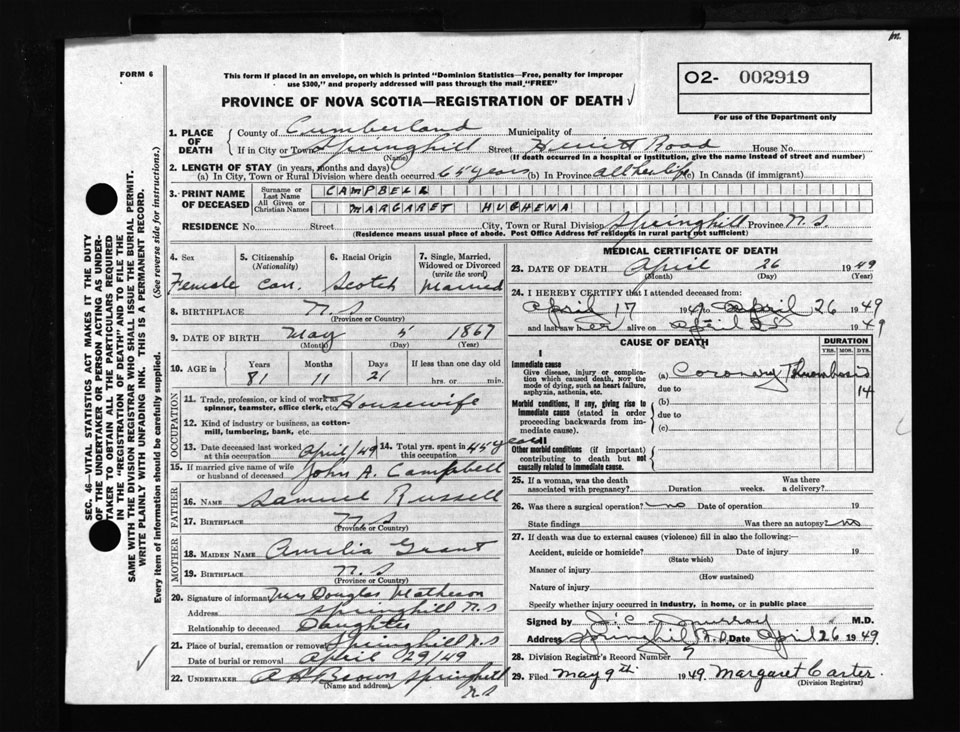 FORM 6
This form if placed in an envelope, on which is printed "Dominion Statistics—Free, penalty for improper
use $300," and properly addressed will pass through the mail "FREE"
PROVINCE OF NOVA SCOTIA—REGISTRATION OF DEATH
02- 002919
For use of the Department only
SEC. 46—VITAL STATISTICS ACT MAKES IT THE DUTY
OF THE UNDERTAKER OR PERSON ACTING AS UNDER-
TAKER TO OBTAIN ALL THE PARTICULARS REQUIRED
IN THE "REGISTRATION OF DEATH" AND TO FILE THE
SAME WITH THE DIVISION REGISTRAR WHO SHALL ISSUE THE BURIAL PERMIT.
WRITE PLAINLY WITH UNFADING INK. THIS IS A PERMANENT RECORD.
Every item of information should be carefully supplied. (See reverse side for instructions.)
1. PLACE OF DEATH
County of Cumberland Municipality of
If in City or Town Springhill Street Road House No.
(Name) (If death occurred in a hospital or institution, give the name instead of street and number)
2. LENGTH OF STAY (in years, months and days)
(a) In City, Town or Rural Division where death occurred 65 years (b) In Province all her life (c) In Canada (if immigrant)
3. PRINT NAME OF DECEASED
Surname or Last Name CAMPBELL
All Given or Christian Names MARGARET HUGHENA
RESIDENCE No. Street City, Town or Rural Division Springhill Province N.S.
(Residence means usual place of abode. Post Office Address for residents in rural parts not sufficient)
4. Sex
Female
5. Citizenship
(Nationality)
Can.
6. Racial Origin
Scotch
7. Single, Married,
Widowed or Divorced
(write the word)
Married
8. BIRTHPLACE N.S
(Province or Country)
9. DATE OF BIRTH May 5 1867
(Month) (Day) (Year)
10. AGE in Years Months Days If less than one day old
81 11 21 hrs. or min.
OCCUPATION
11. Trade, profession, or kind of work as
spinner, teamster, office clerk, etc. Housewife
12. Kind of industry or business, as cotton-
mill, lumbering, bank, etc.
13. Date deceased last worked
at this occupation April/49
14. Total yrs. spent in
this occupation 45 years
15. If married give name of wife
or husband of deceased John A. Campbell
FATHER
16. NAME Samuel Russell
17. BIRTHPLACE N.S
(Province or Country)
MOTHER
18. MAIDEN NAME Amelia Grant
19. BIRTHPLACE N.S
(Province or Country)
20. Signature of informant Mrs Douglas Matheson
Address Springhill N.S
Relationship to deceased Daughter
21. Place of burial, cremation or removal Springhill N.S
Date of burial or removal April 29/49
22. UNDERTAKER A H Brown Springhill
(Name and address) N.S
MEDICAL CERTIFICATE OF DEATH
23. DATE OF DEATH April 26 1949
(Month) (Day) (Year)
24. I HEREBY CERTIFY that I attended deceased from:
April 17 19 to April 26 1949
and last saw her alive on April 1949
CAUSE OF DEATH
DURATION
YRS. MOS. DYS.
I
Immediate cause
Give disease, injury or complica-
tion which caused death, not the
mode of dying, such as heart failure,
asphyxia, asthenia, etc.
(a) Coronary Thrombosis 14
due to
Morbid conditions, if any, giving rise to
immediate cause (stated in order
proceeding backwards from im-
mediate cause).
(b)
due to
(c)
II
Other morbid conditions (if important)
contributing to death but not
causally related to immediate cause.
25. If a woman, was the death
associated with pregnancy? Duration weeks. Was there
a delivery?
26. Was there a surgical operation? no Date of operation 19
State findings Was there an autopsy? no
27. If death was due to external causes (violence) fill in also the following:—
Accident, suicide or homicide? Date of injury 19
(State which)
Manner of injury
(How sustained)
Nature of injury
Specify whether injury occurred in industry, in home, or in public place
Signed by J. C. Murray M.D.
Address Springhill N.S. Date April 26 1949.
28. Division Registrar's Record Number 7
29. Filed May 9th. 1949. Margaret Carter.
(Division Registrar)